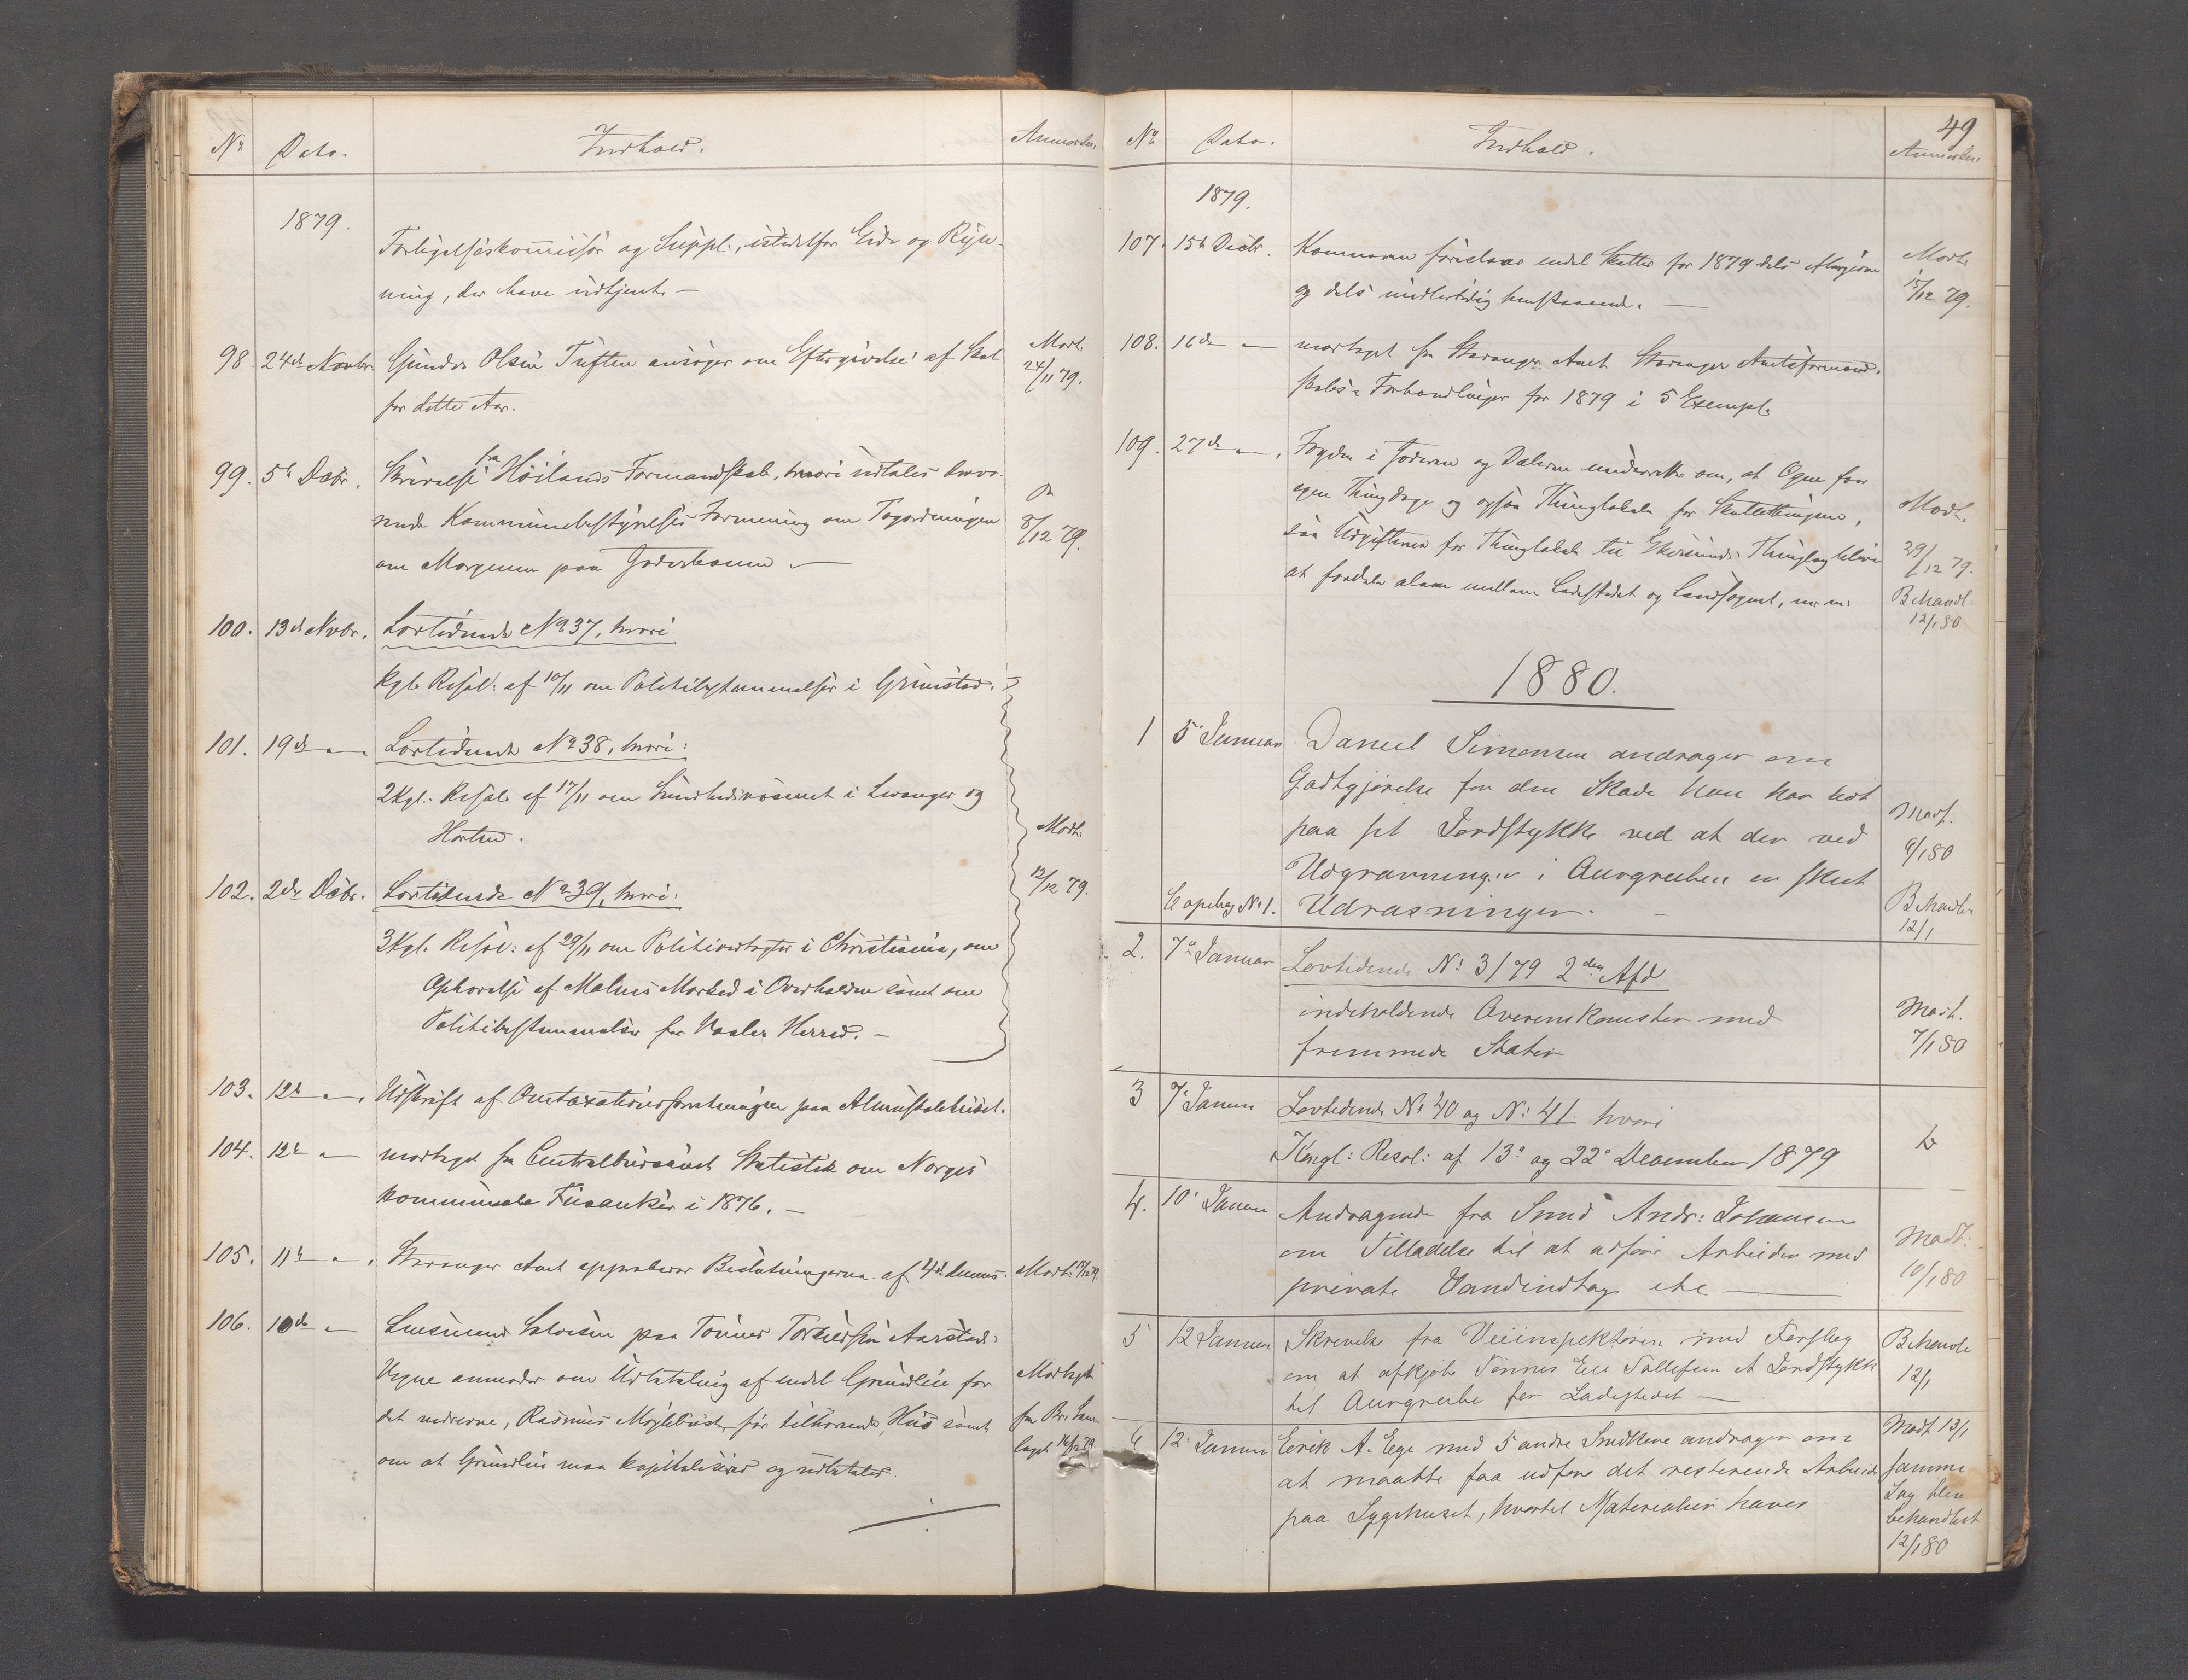 Nr Dato. Indhold. Anmærkn.
1879.
Forligelseskommissær og Suppl., istedetfor Eide og Ryen-
ning, der have udtjent. —
98. 24de Novbr. Gunder Olsen Tuften ansøger om Eftergivelse af Skat Modt.
for dette Aar. 24/11 79.
99. 5te Decbr. Skrivelse fra Høilands Formandskab, hvori udtales herværende
Kommunebestyrelses Formening om Togordningen 8/12 79.
om Morgenen paa Jæderbanen —
100. 13de Novbr. Lovtidende No 37, hvori
Kgl. Resol: af 10/11 om Politibestemmelser i Grimstad.
101. 19de — Lovtidende No 38, hvori:
2 Kgl. Resol. af 17/11 om Sundhedsvæsenet i Levanger og
Horten. Modt.
102. 2de Decbr. Lovtidende No 39, hvori: 12/12 79.
3 Kgl. Resol: af 29/11 om Politivedtægter i Christiania, om
Ophævelse af Melhus Marked i Overhalden samt om
Politibestemmelser for Vaaler Herred. —
103. 12te — Udskrift af Omtaxationsforretningen paa Almueskolehuset.
104. 12te — modtaget fra Centralbureauet Statistik om Norges
kommunale Finantser i 1876. —
105. 11te — Stavanger Amt approberer Beslutningerne af 4de dennes. Modt.
106. 10de — Salvesen paa Tønnes Aarstads
Vegne anmoder om Udbetaling af endel Grundleie for Modtaget
det nedrevne, Rasmus før tilhørende, Huus samt
om at Grundleien maa kapitaliseres og udbetales.

49
Nr Dato. Indhold. Anmærkn.
1879.
107. 15de Decbr. Kæmneren foreslaar endel Skatter for 1879 dels Modt.
og dels midlertidig henstaaende. — 15/12 79.
108. 16de — modtaget fra Stavanger Amt Stavanger Amtsformand-
skabs Forhandlinger for 1879 i 5 Exempl.
109. 27de — Fogden i Jæderen og Dalerne underretter om, at Ogne faar
egne Thingdage og ogsaa Thinglokale for Skattethingene, Modt.
saa Udgifterne for Thinglokale til Ekersunds Thinglag bliver 29/12 79.
at fordele alene mellem Ladestedet og Landsognet, m. m. Behandl.
12/1 80
1880.
1 5te Januar Daniel Simonsen andrager om
Godtgjørelse for den Skade han har lidt
paa sit Jordstykke ved at der ved Modt.
Udgravninger i Aurgruben er skeet 6/1 80
Copibog No 1. Udrasninger. — Behandlet
12/1
2. 7de Januar Lovtidende No 3/79 2den Afd
indeholdende Overenskomster med Modt.
fremmede Stater 7/1 80
3 7de Januar Lovtidende No 40 og No 41 hvori
Kongl: Resol: af 13de og 22de December 1879
4. 10de Januar Andragende fra Smed Andr: Johansen
om Tilladelse til at udføre Arbeider med Modt:
private Vandindtag etc — 10/1 80
5 12 Januar Skrivelse fra Veiinspektøren med Forslag Behandlet
om at afkjøbe Tønnes Eie Tollefsen et Jordstykke 12/1
til Aurgrube for Ladestedet —
6 12te Januar Eerik A. Eege med 5 andre Snedkere andrager om Modt 13/1
at maatte faa udføre det resterende Arbeide samme
paa Sygehuset, hvortil Materialier haves Sag blev
behandlet
12/1 80